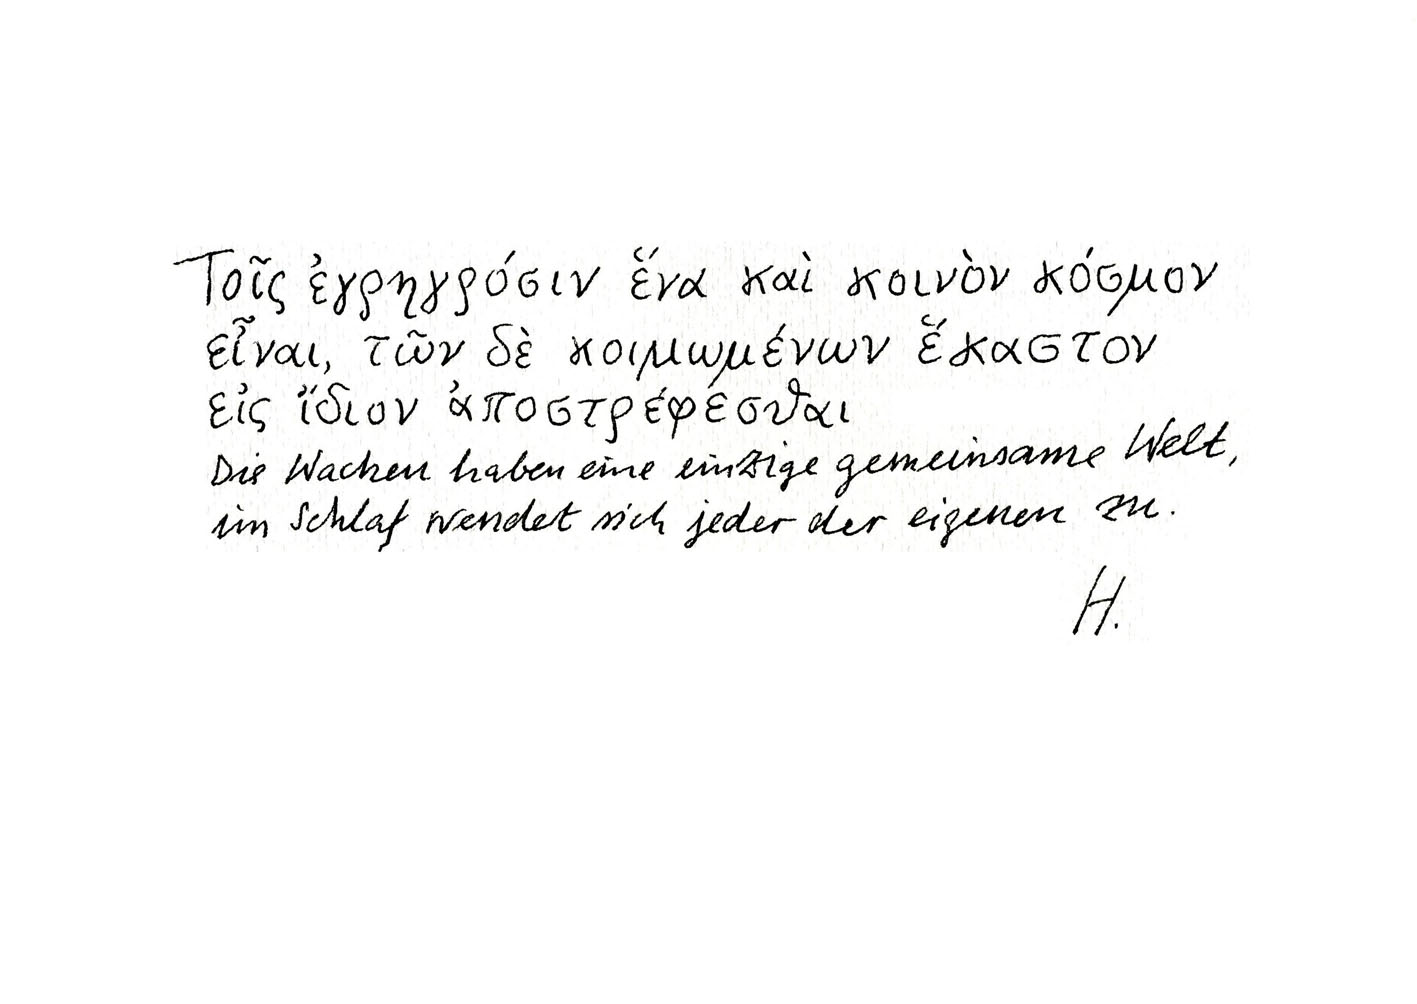 Τοῖς ἐγρηγρόσιν ἕνα καὶ κοινὸν κόσμον
εἶναι, τῶν δὲ κοιμωμένων ἕκαστον
εἰς ἴδιον ἀποστρέφέσθαι
Die Wachen haben eine einzige gemeinsame Welt,
im Schlaf wendet sich jeder der eigenen zu.
H.